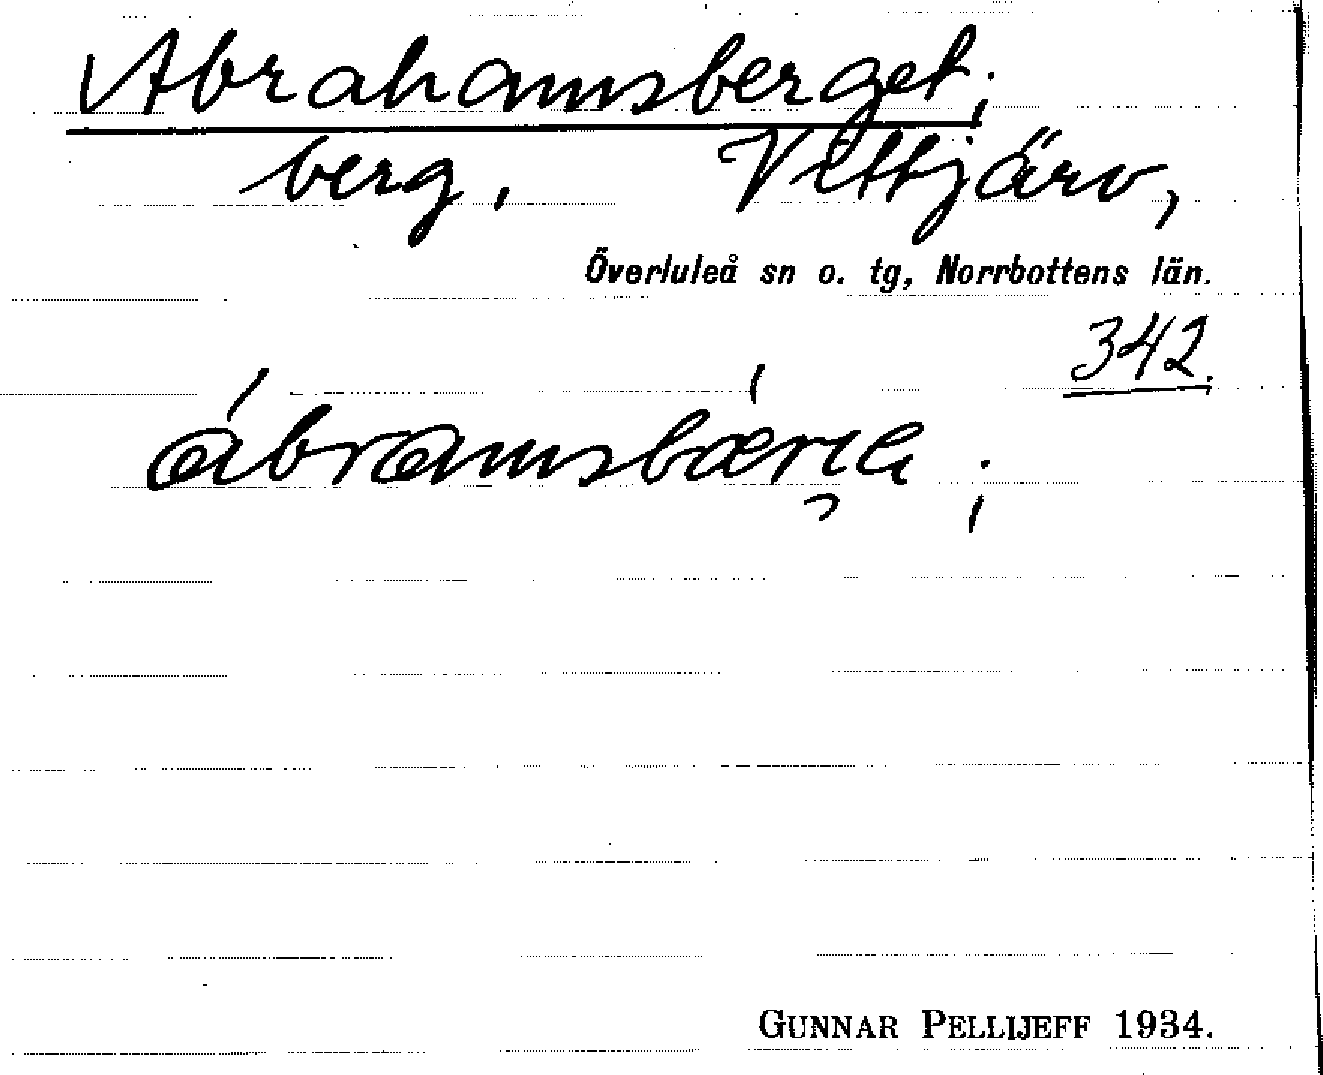 Abrahamsberget;
berg, Vittjärv,
Överluleå sn o. tg, Norrbottens län.
342.
GUNNAR PELLIJEFF 1934.